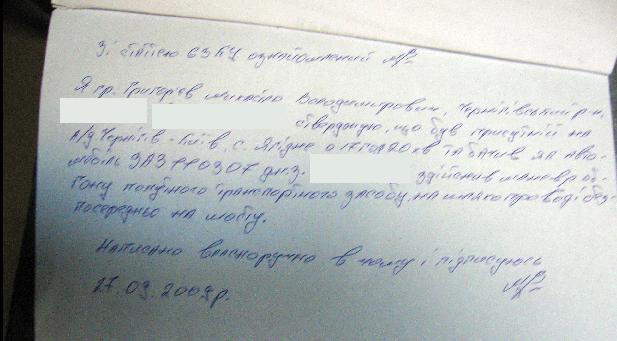 Зі статтею 63 КУ ознайомлений
Я гр. Григор'єв Михайло Володимирович, Чернігівський р-н,
стверджую, що був присутній на
а/д Чернігів - Київ, с. Ягідне о 17 год 20 хв та бачив як авто-
мобіль ЗАЗ 110307 дн.з. здійснив маневр об-
гону попутного транспортного засобу, на шляхопроводі без-
посередньо на мосту.
Написано власноручно в чому і підписуюсь
27.09.2009р.